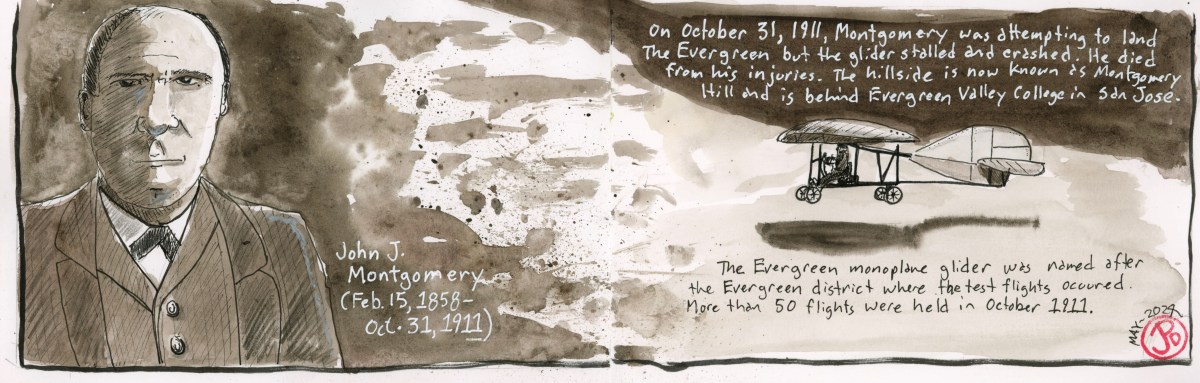 John J.
Montgomery
(Feb. 15, 1858-
Oct. 31, 1911)
On October 31, 1911, Montgomery was attempting to land
The Evergreen but the glider stalled and crashed. He died
from his injuries. The hillside is now known as Montgomery
Hill and is behind Evergreen Valley College in San José.
The Evergreen monoplane glider was named after
the Evergreen district where the test flights occured.
More than 50 flights were held in October 1911.
MAY-2024
JPD